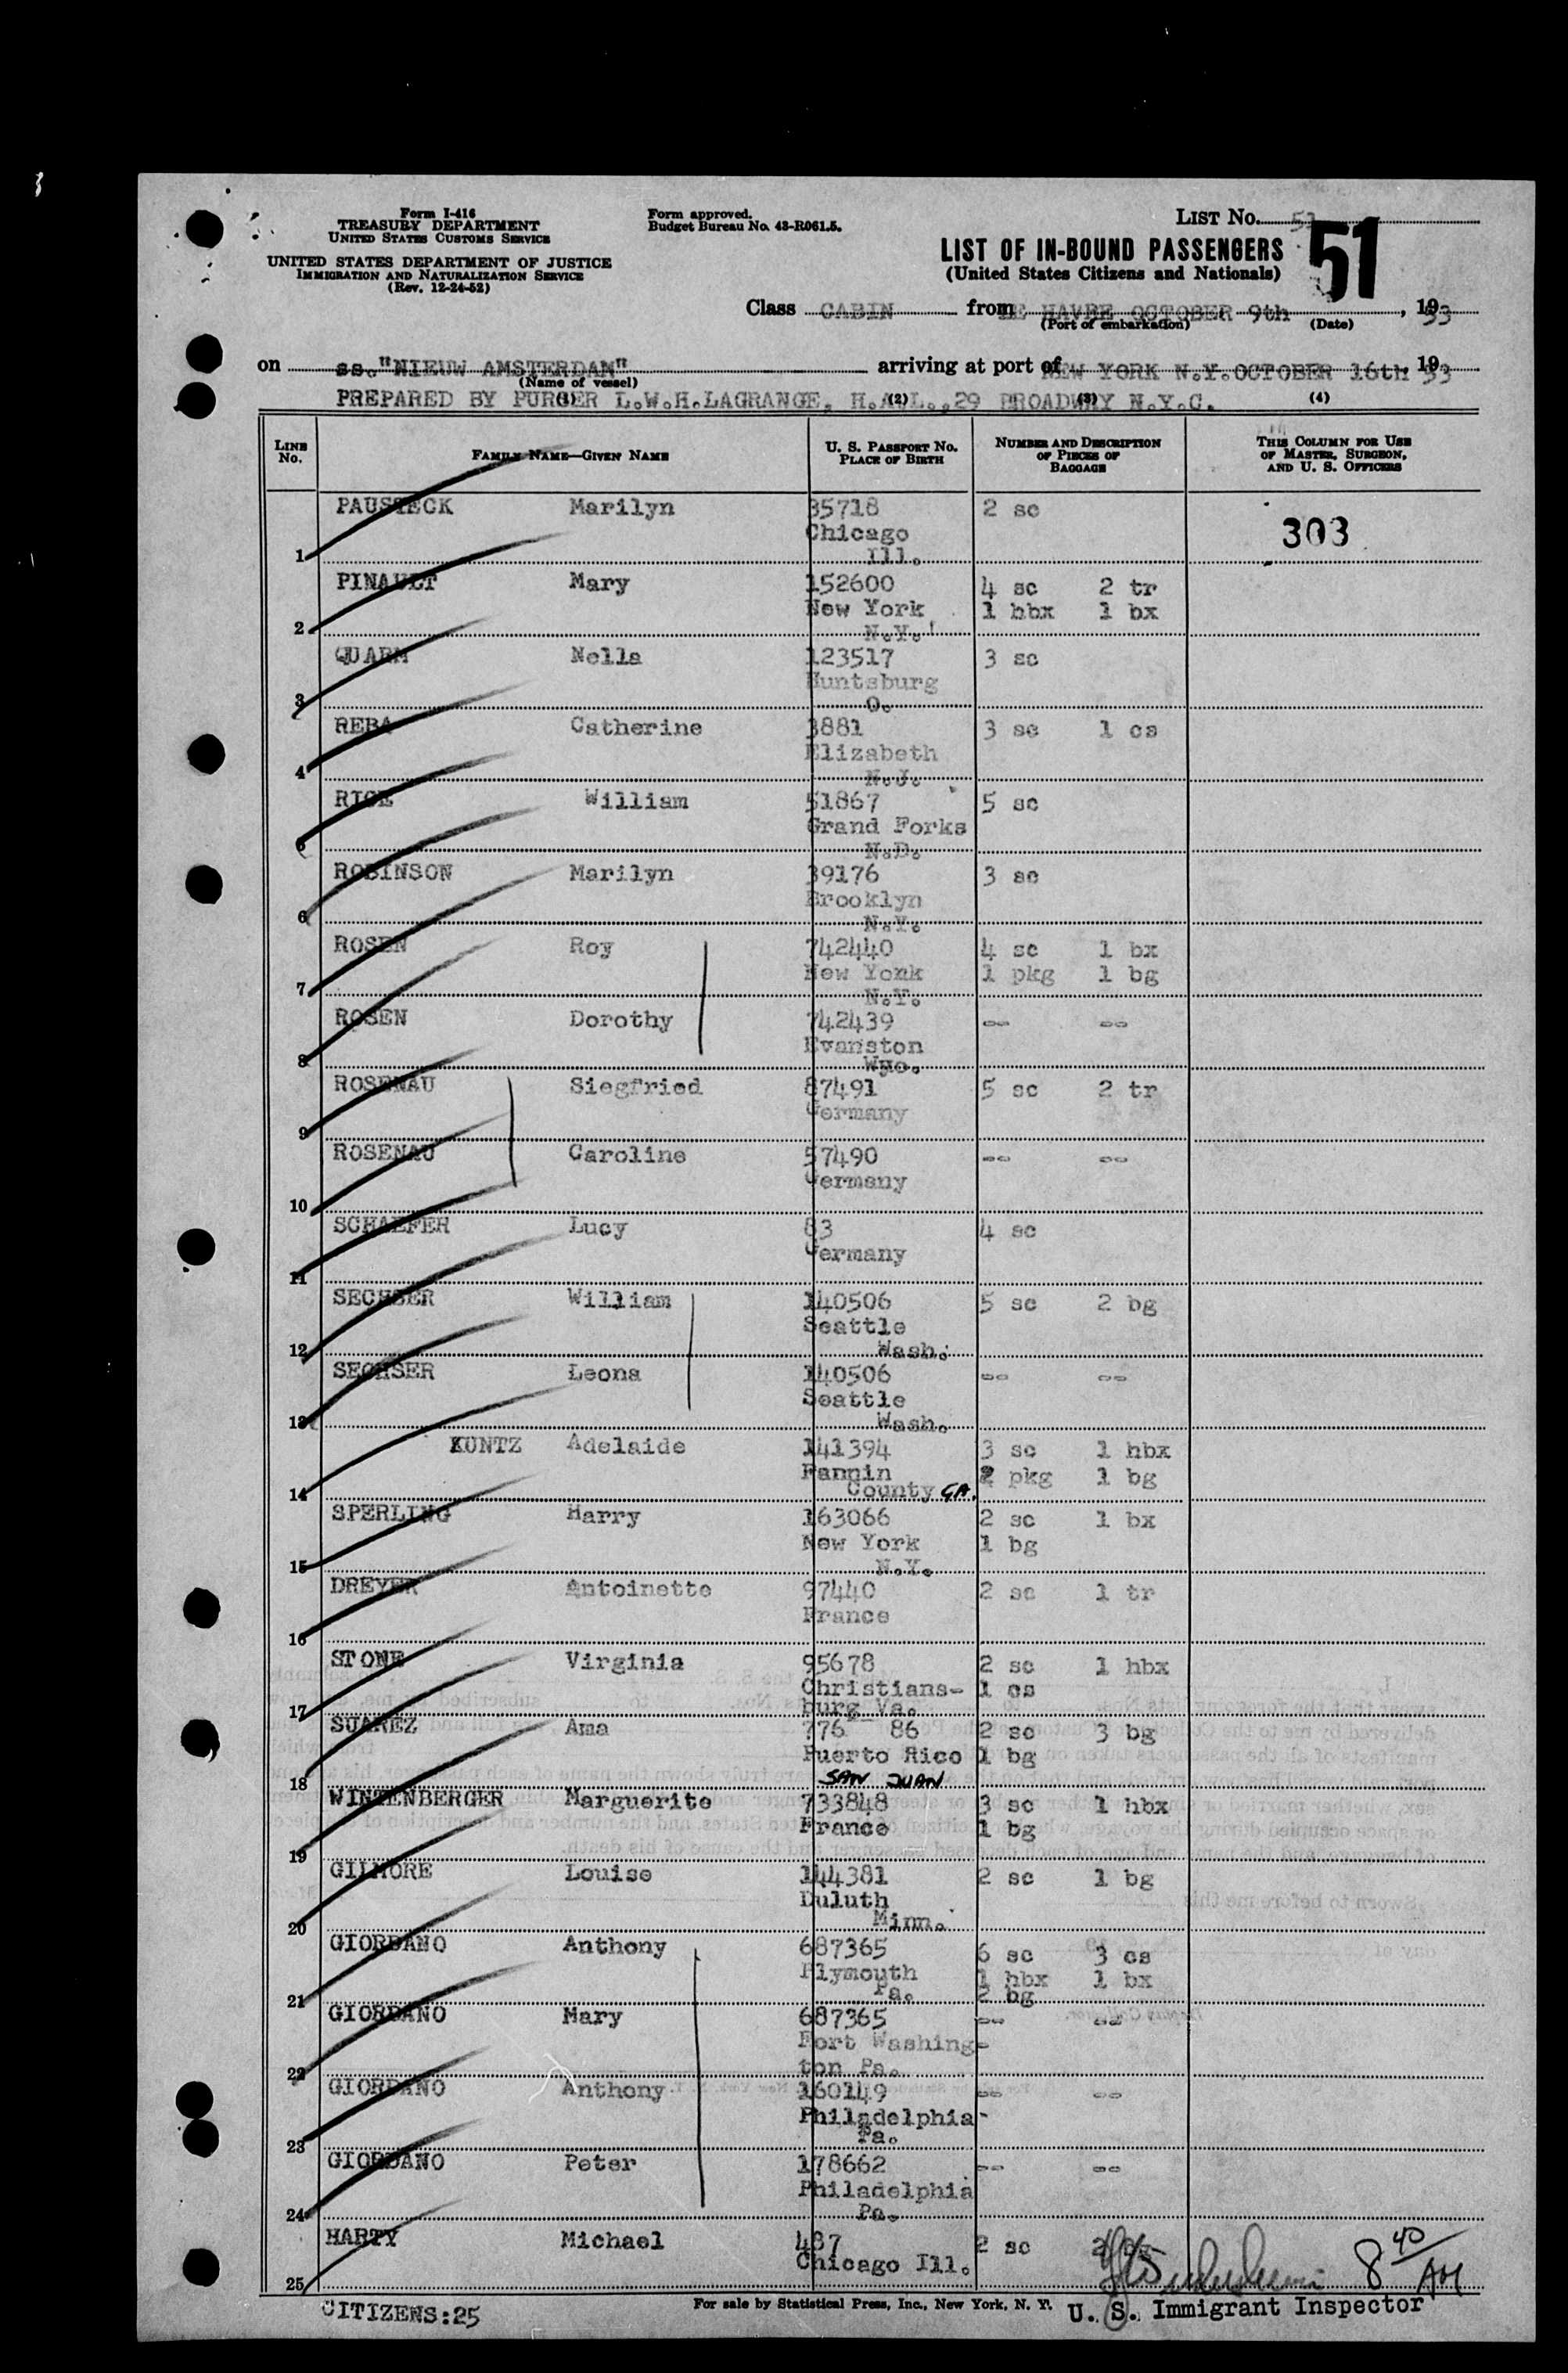 Form I-416
TREASURY DEPARTMENT
UNITED STATES CUSTOMS SERVICE
UNITED STATES DEPARTMENT OF JUSTICE
IMMIGRATION AND NATURALIZATION SERVICE
(Rev. 12-24-52)
Form approved.
Budget Bureau No. 43-R061.5.
LIST No.
51
LIST OF IN-BOUND PASSENGERS
(United States Citizens and Nationals)
Class CABIN from LE HAVRE OCTOBER 9th, 1953
(Port of embarkation) (Date)
on ss."NIEUW AMSTERDAM" arriving at port of NEW YORK N.Y. OCTOBER 16th 1953
(Name of vessel)
PREPARED BY PURSER L.W.H.LAGRANGE, H.A.L.,29 BROADWAY N.Y.C.
(2) (3) (4)
LINE No. FAMILY NAME—GIVEN NAME U. S. PASSPORT No. PLACE OF BIRTH NUMBER AND DESCRIPTION OF PIECES OF BAGGAGE THIS COLUMN FOR USE OF MASTER, SURGEON, AND U. S. OFFICERS
PAUSTECK Marilyn 35718 2 sc
Chicago 303
1 Ill.
PINAULT Mary 152600 4 sc 2 tr
New York 1 hbx 1 bx
2 N.Y.
QUARM Nella 123517 3 sc
Huntsburg
3 O.
REBA Catherine 3881 3 sc 1 cs
Elizabeth
4 N.J.
RICE William 51867 5 sc
Grand Forks
5 N.D.
ROBINSON Marilyn 39176 3 sc
Brooklyn
6 N.Y.
ROSEN Roy 742440 4 sc 1 bx
New York 1 pkg 1 bg
7 N.Y.
ROSEN Dorothy 742439 -- --
Evanston
8 Wyo.
ROSENAU Siegfried 87491 5 sc 2 tr
9 Germany
ROSENAU Caroline 57490 -- --
Germany
10
SCHAEFER Lucy 83 4 sc
Germany
11
SECHSER William 140506 5 sc 2 bg
Seattle
12 Wash.
SECHSER Leona 140506 -- --
Seattle
13 Wash.
KUNTZ Adelaide 141394 3 sc 1 hbx
Fannin 2 pkg 1 bg
14 County GA.
SPERLING Harry 163066 2 sc 1 bx
New York 1 bg
15 N.Y.
DREYER Antoinette 97440 2 sc 1 tr
France
16
STONE Virginia 95678 2 sc 1 hbx
Christians- 1 cs
17 burg Va.
SUAREZ Ama 776 86 2 sc 3 bg
Puerto Rico 1 bg
18 SAN JUAN
WINTENBERGER Marguerite 733848 3 sc 1 hbx
France 1 bg
19
GILMORE Louise 144381 2 sc 1 bg
Duluth
20 Minn.
GIORDANO Anthony 687365 6 sc 3 cs
Plymouth 1 hbx 1 bx
21 Pa. 2 bg
GIORDANO Mary 687365 -- --
Fort Washing-
22 ton Pa.
GIORDANO Anthony 160149 -- --
Philadelphia
23 Pa.
GIORDANO Peter 178662 -- --
Philadelphia
24 Pa.
HARTY Michael 487 2 sc 2
Chicago Ill. 8 40 AM
25
CITIZENS:25
For sale by Statistical Press, Inc., New York, N. Y.
U. S. Immigrant Inspector